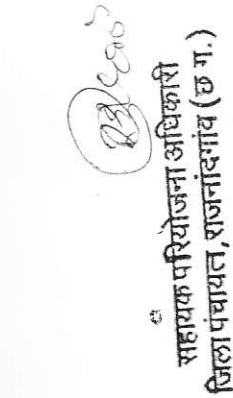 सहायक परियोजना अधिकारी
जिला पंचायत, राजनांदगांव (छ.ग.)